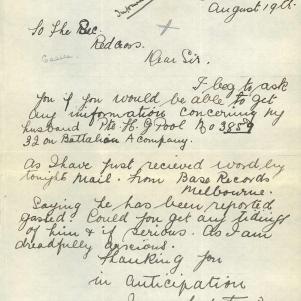 August 19th
To The Sec.
Red Cross.
Dear Sir.
I beg to ask
you if you would be able to get
any information concerning my
husband Pte H. G Pool No 3859
32 on Battalion A company.
As I have just recieved word by
tonight Mail. from Base Records
Melbourne.
Saying he has been reported
gassed. Could you get any tidings
of him & if serious. As I am
dreadfully anxious.
Thanking you
in anticipation